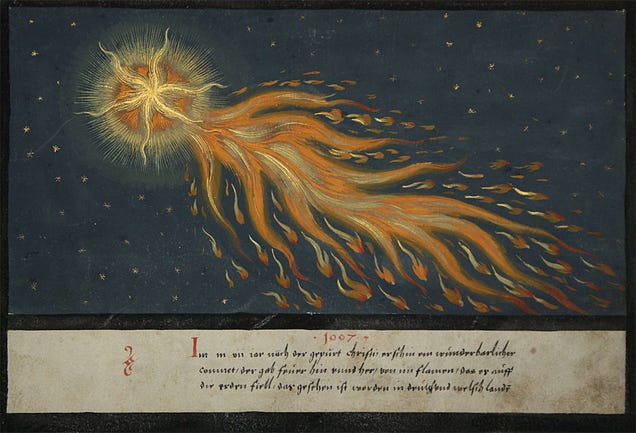 · 1007 ·
Im m vii iar nach der gepürt Christi erschin ein wünderbarlicher
commet, der gab feüer hin vnnd her, von im flamen, das er auff
die erden fiell, das gesehen ist worden in welsch landt